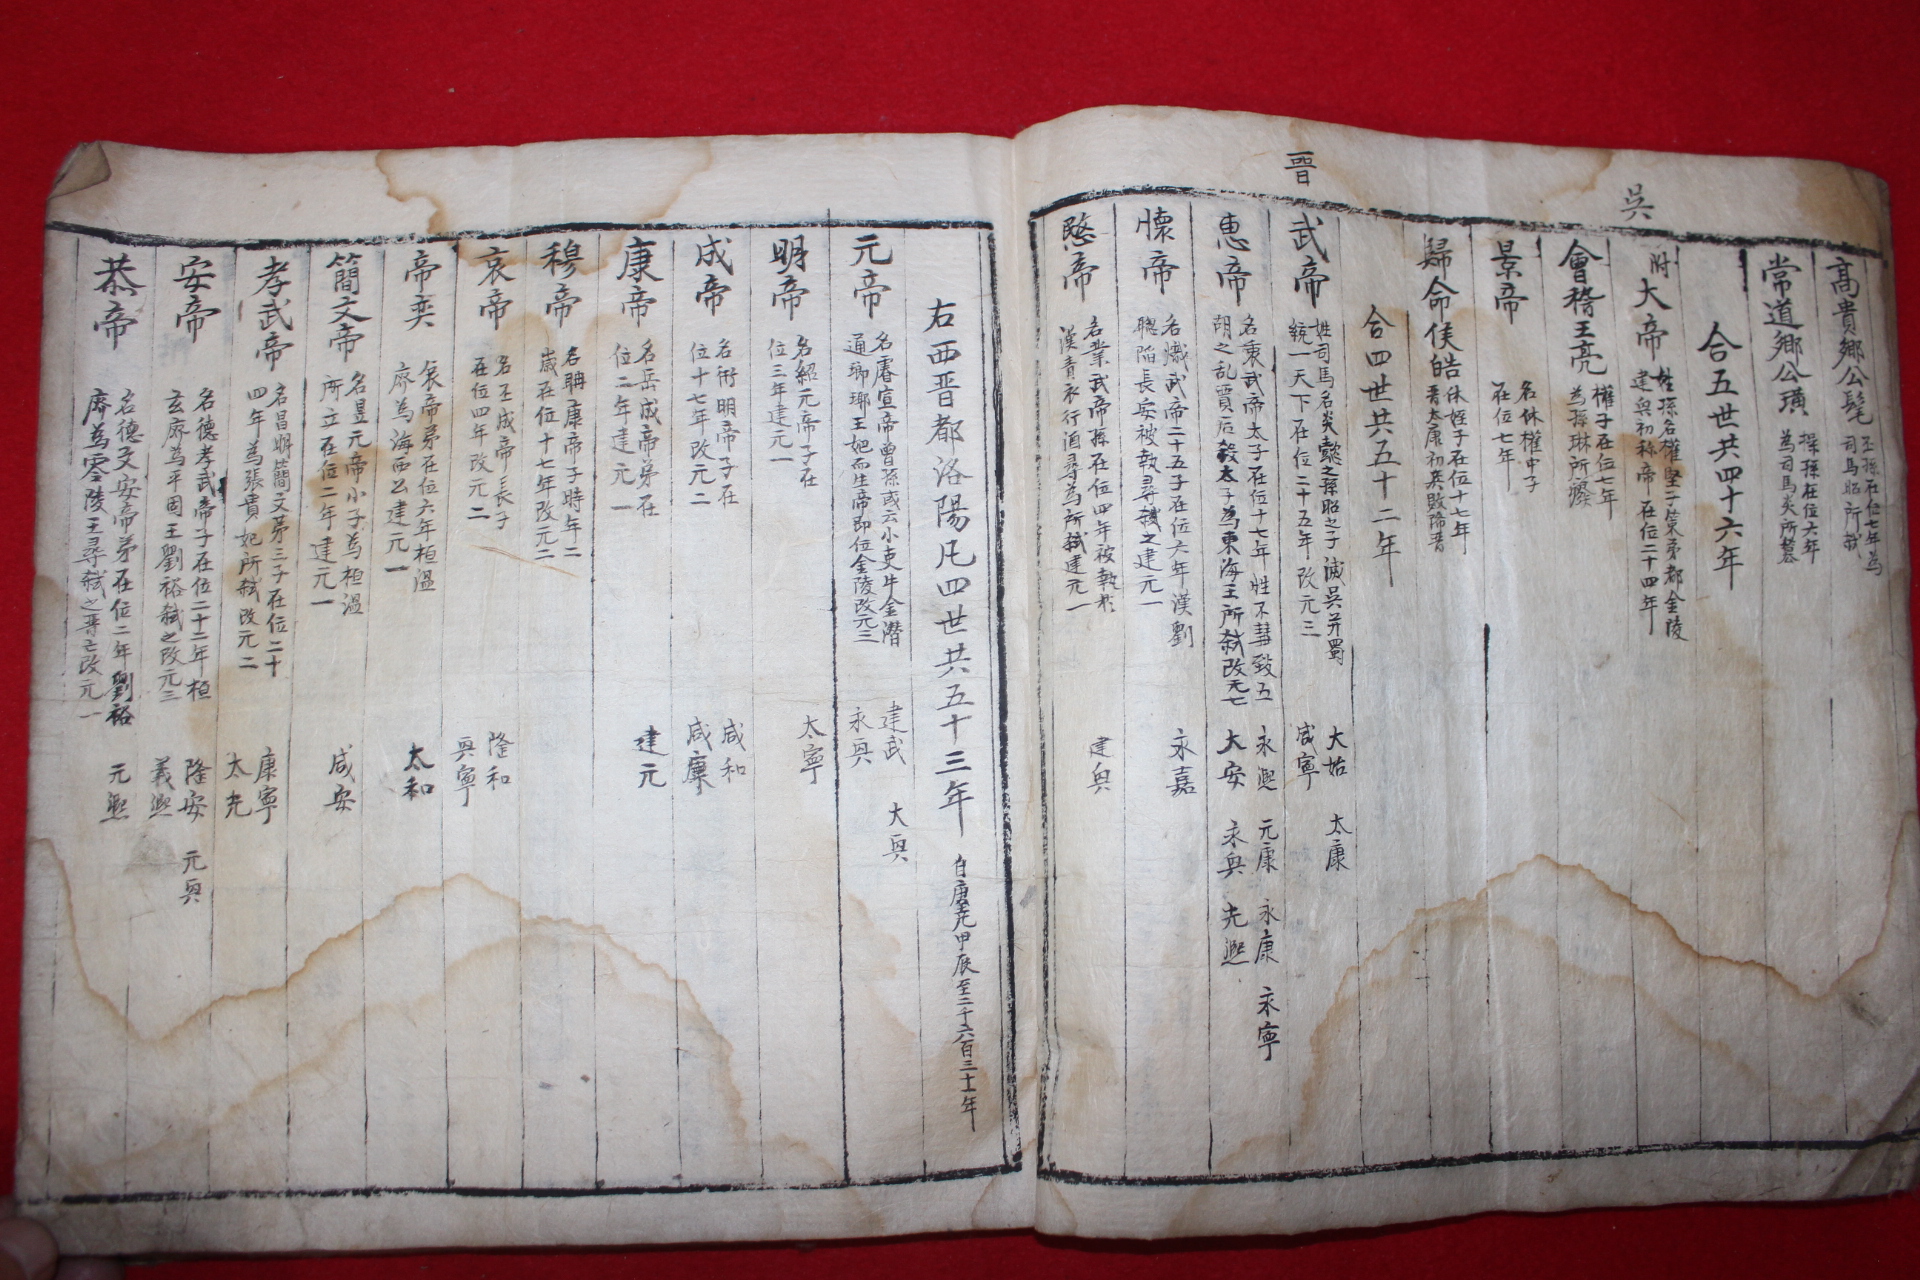 高貴鄉公髦 丕孫在位七年為
司馬昭所弑
常道鄉公璜 操孫在位六年
為司馬炎所簒
合五世共四十六年
吳
附大帝 姓孫名權堅二子策弟都金陵
建興初称帝在位二十四年
會稽王亮 權子在位七年
為孫琳所廢
景帝 名休權中子
在位七年
歸命侯皓 休姪子在位十七年
晋太康初兵敗降晋
合四世共五十二年
晋
武帝 姓司馬名炎懿之孫昭之子滅吳并蜀
統一天下在位二十五年改元三
大始 太康
咸寧
惠帝 名衷武帝太子在位十七年性不慧致五
胡之乱賈后殺太子為東海王所弑改元七
永熈 元康 永康 永寧
大安 永興 光熈
懐帝 名熾武帝二十五子在位六年漢劉
聰陷長安被執尋弑之建元一
永嘉
愍帝 名業武帝孫在位四年被執於
漢青衣行酒尋為所弑建元一
建興
右西晋都洛陽凡四世共五十三年 自唐堯甲辰至二千六百三十一年
元帝 名睿宣帝曾孫或云小吏牛金潛
通瑯琊王妃而生帝即位金陵改元三
建武 大興
永興
明帝 名紹元帝子在
位三年建元一
太寧
成帝 名衍明帝子在
位十七年改元二
咸和
咸康
康帝 名岳成帝弟在
位二年建元一
建元
穆帝 名聃康帝子時年二
歳在位十七年改元二
哀帝 名丕成帝長子
在位四年改元二
隆和
興寧
帝奕 哀帝弟在位六年桓温
廢為海西公建元一
太和
簡文帝 名昱元帝小子為桓温
所立在位二年建元一
咸安
孝武帝 名昌明簡文第三子在位二十
四年為張貴妃所弑改元二
康寧
太元
安帝 名德孝武帝子在位二十二年桓
玄廢為平固王劉裕弑之改元三
隆安 元興
義熈
恭帝 名德文安帝弟在位二年劉裕
廢為零陵王尋弑之晋亡改元一
元熈